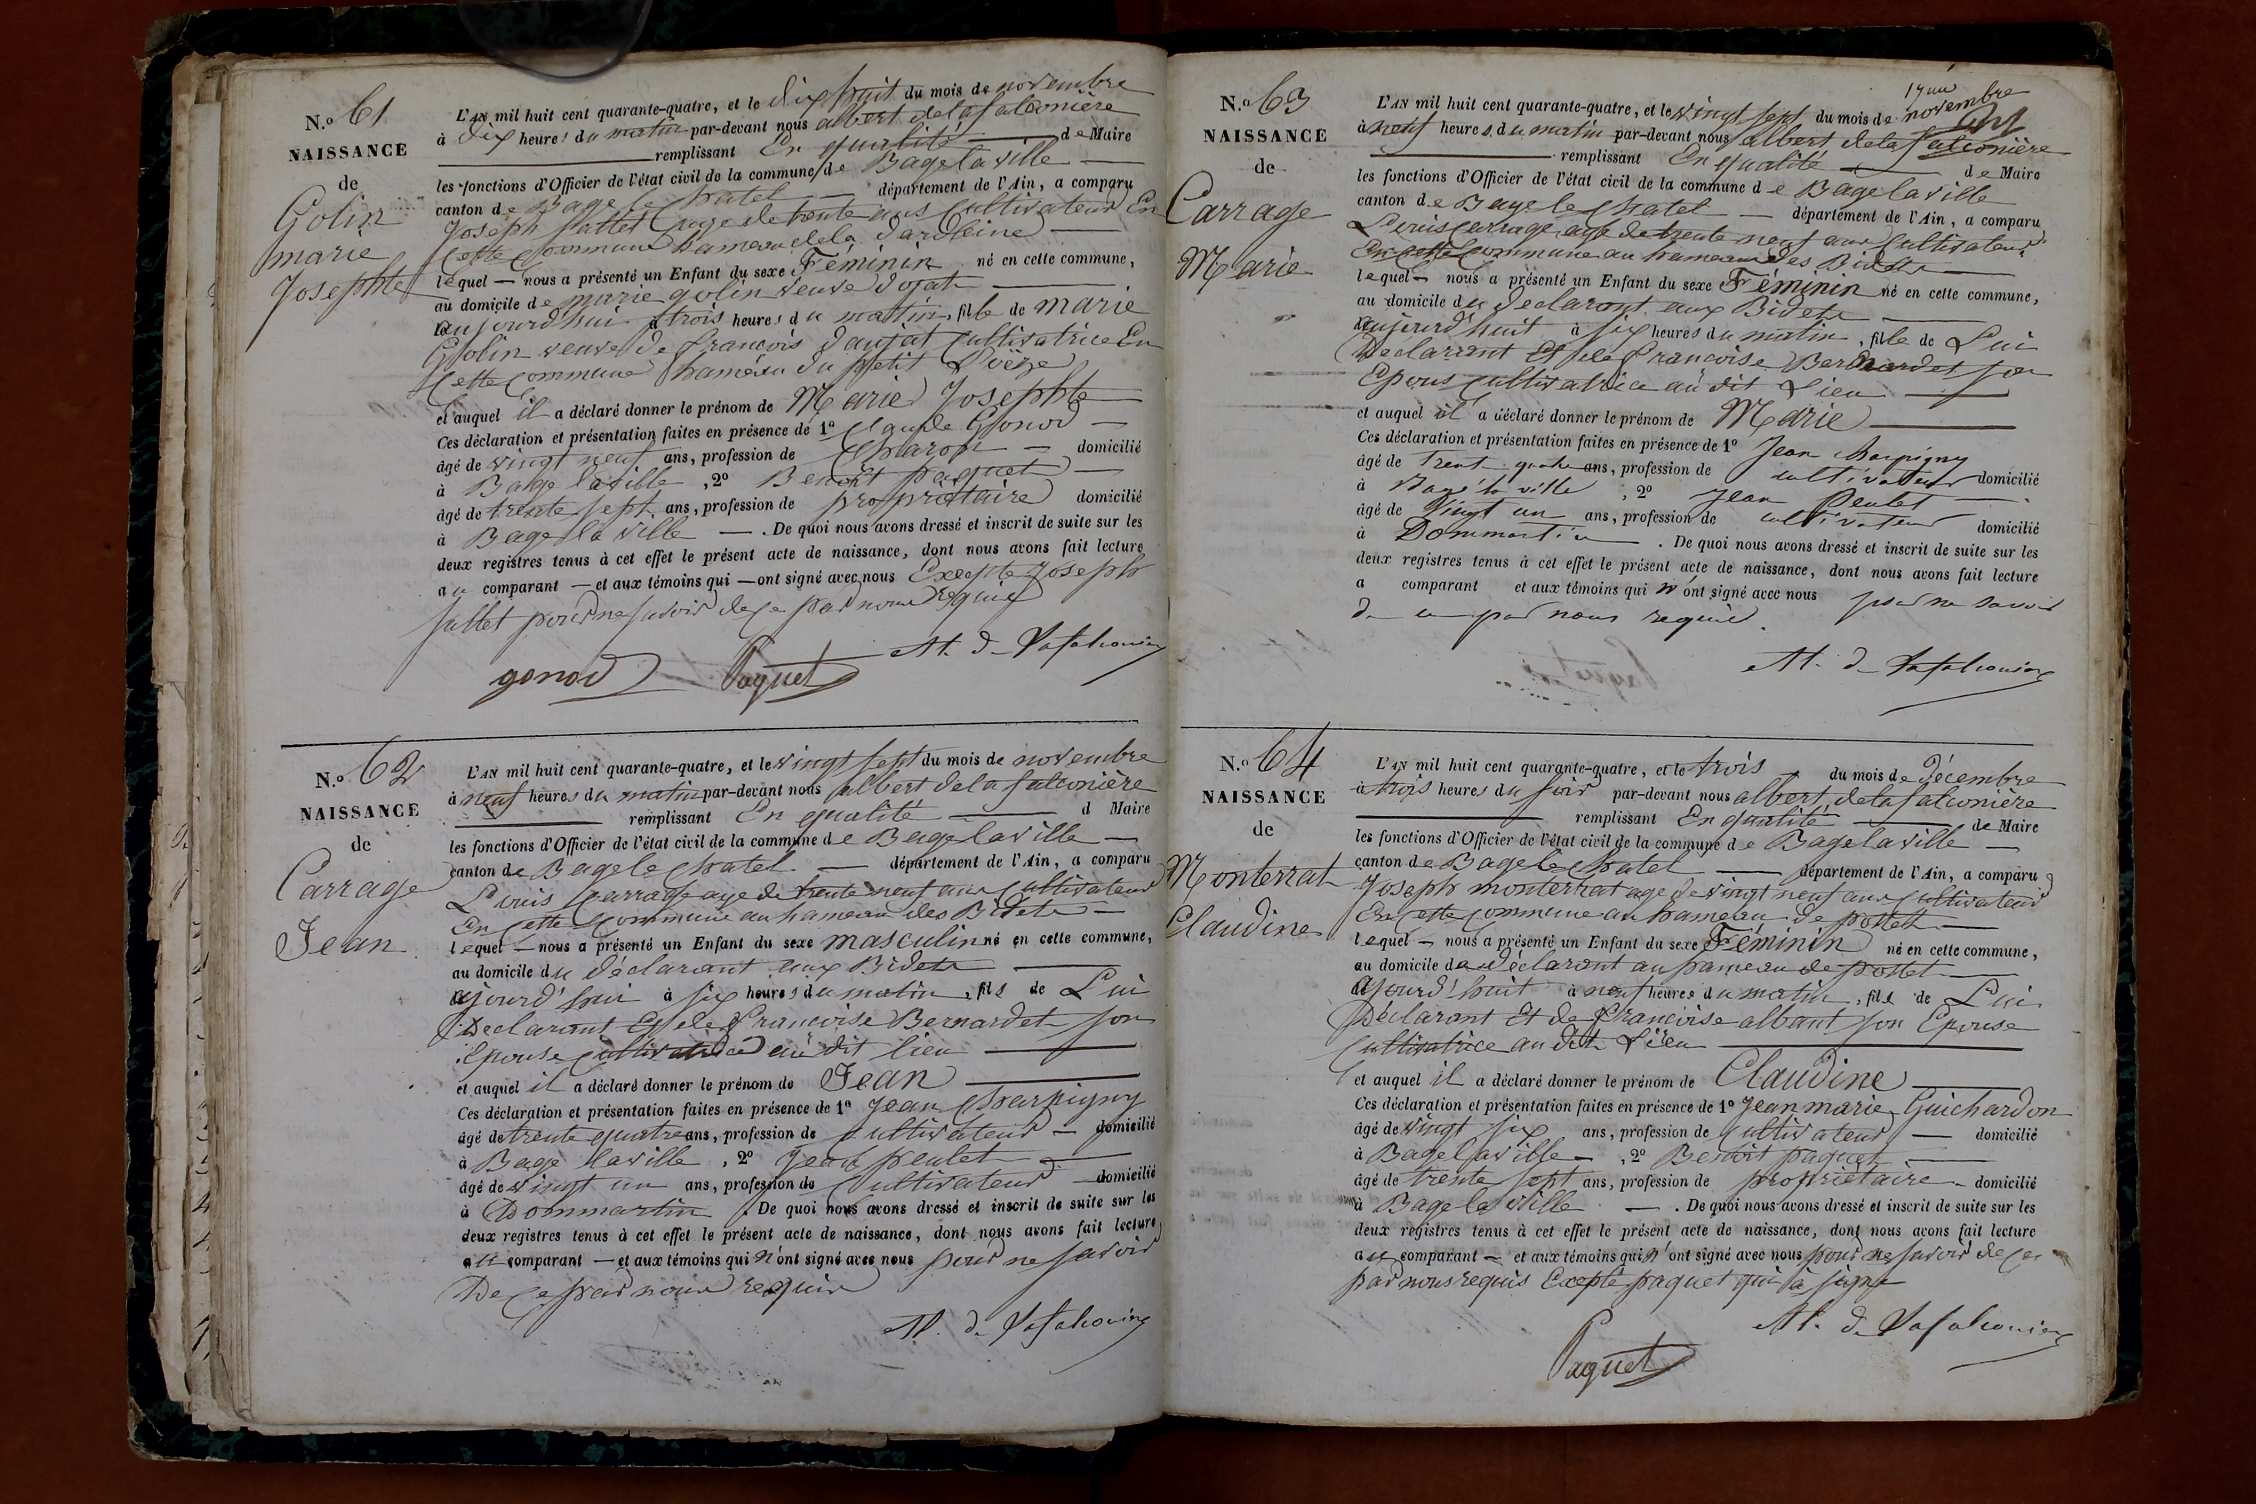 N.o 61
NAISSANCE
de
Golin
marie
Josephte
L'AN mil huit cent quarante-quatre, et le dix huit du mois de novembre
à dix heures du matin par-devant nous albert delafalconière
remplissant En qualité de Maire
les fonctions d'Officier de l'état civil de la commune de Bage la ville
canton de Bage le chatel département de l'Ain, a comparu
Joseph fallet age de trente ans Cultivateur En
Cette Commune hameau dela
lequel nous a présenté un Enfant du sexe Féminin né en cette commune,
au domicile de marie golin veuve dojat
aujourd'hui à trois heures du matin, fille de marie
Golin veuve de francois daujat Cultivatrice En
Cette Commune hameau du petit
et auquel il a déclaré donner le prénom de Marie Josephte
Ces déclaration et présentation faites en présence de 1o Claude Gonod
âgé de vingt neuf ans, profession de Charon domicilié
à Bage laville, 2o Benoit paquet
âgé de trente sept ans, profession de propriétaire domicilié
à Bage la ville. De quoi nous avons dressé et inscrit de suite sur les
deux registres tenus à cet effet le présent acte de naissance, dont nous avons fait lecture
au comparant et aux témoins qui ont signé avec nous Excepte Joseph
fallet pour ne savoir de ce par nous requis
gonod Paquet At. de Lafalconière
N.o 62
NAISSANCE
de
Carrage
Jean
L'AN mil huit cent quarante-quatre, et le vingt sept du mois de novembre
à neuf heures du matin par-devant nous albert delafalconière
remplissant En qualité d Maire
les fonctions d'Officier de l'état civil de la commune de Bage laville
canton de Bage le chatel département de l'Ain, a comparu
Louis Carrage age de trente neuf ans Cultivateur
En Cette Commune au hameau des Bidets
lequel nous a présenté un Enfant du sexe masculin né en cette commune,
au domicile du déclarant aux Bidets
ajourd'hui à six heures du matin, fils de Lui
Declarant Et de francoise Bernardet son
Epouse Cultivatrice audit lieu
et auquel il a déclaré donner le prénom de Jean
Ces déclaration et présentation faites en présence de 1o Jean Charpigny
âgé de trente quatre ans, profession de Cultivateur domicilié
à Bage laville, 2o Jean peulet
âgé de vingt un ans, profession de Cultivateur domicilié
à Dommartin. De quoi nous avons dressé et inscrit de suite sur les
deux registres tenus à cet effet le présent acte de naissance, dont nous avons fait lecture
au comparant et aux témoins qui n'ont signé avec nous pour ne savoir
De ce par nous requis
At. de Lafalconière
N.o 63
NAISSANCE
de
Carrage
Marie
L'AN mil huit cent quarante-quatre, et le vingt sept du mois de novembre
à neuf heures du matin par-devant nous albert delafalconière
remplissant En qualité de Maire
les fonctions d'Officier de l'état civil de la commune de Bage laville
canton de Bage le chatel département de l'Ain, a comparu
Louis Carrage age de trente neuf ans Cultivateur
En cette Commune au hameau des Bidets
lequel nous a présenté un Enfant du sexe Féminin né en cette commune,
au domicile du declarant aux Bidets
aujourd'huit à six heures du matin, fille de Lui
Declarant Et de Francoise Bernardet son
Epous Cultivatrice audit Lieu
et auquel il a déclaré donner le prénom de Marie
Ces déclaration et présentation faites en présence de 1o Jean Charpigny
âgé de trente quatre ans, profession de cultivateur domicilié
à Bagé la ville, 2o Jean Peulet
âgé de vingt un ans, profession de cultivateur domicilié
à Dommartin. De quoi nous avons dressé et inscrit de suite sur les
deux registres tenus à cet effet le présent acte de naissance, dont nous avons fait lecture
a comparant et aux témoins qui n'ont signé avec nous pour ne savoir
de ce par nous requis.
At. de Lafalconière
N.o 64
NAISSANCE
de
Monterrat
Claudine
L'AN mil huit cent quarante-quatre, et le trois du mois de décembre
à trois heures du soir par-devant nous albert delafalconière
remplissant En qualité de Maire
les fonctions d'Officier de l'état civil de la commune de Bage laville
canton de Bage le chatel département de l'Ain, a comparu
Joseph monterrat age de vingt neuf ans Cultivateur
En Cette Commune au hameau de postet
lequel nous a présenté un Enfant du sexe Féminin né en cette commune,
au domicile du déclarant au hameau de postet
ajourd'huit à neuf heures du matin, fils de Lui
Déclarant Et de francoise albant son Epouse
Cultivatrice au dit Lieu
et auquel il a déclaré donner le prénom de Claudine
Ces déclaration et présentation faites en présence de 1o Jean marie Guichardon
âgé de vingt six ans, profession de Cultivateur domicilié
à Bage laville, 2o Benoit paquet
âgé de trente sept ans, profession de propriétaire domicilié
à Bage la ville. De quoi nous avons dressé et inscrit de suite sur les
deux registres tenus à cet effet le présent acte de naissance, dont nous avons fait lecture
au comparant et aux témoins qui n'ont signé avec nous pour ne savoir de ce
par nous requis Excepté paquet qui à signe
At. de Lafalconière
Paquet